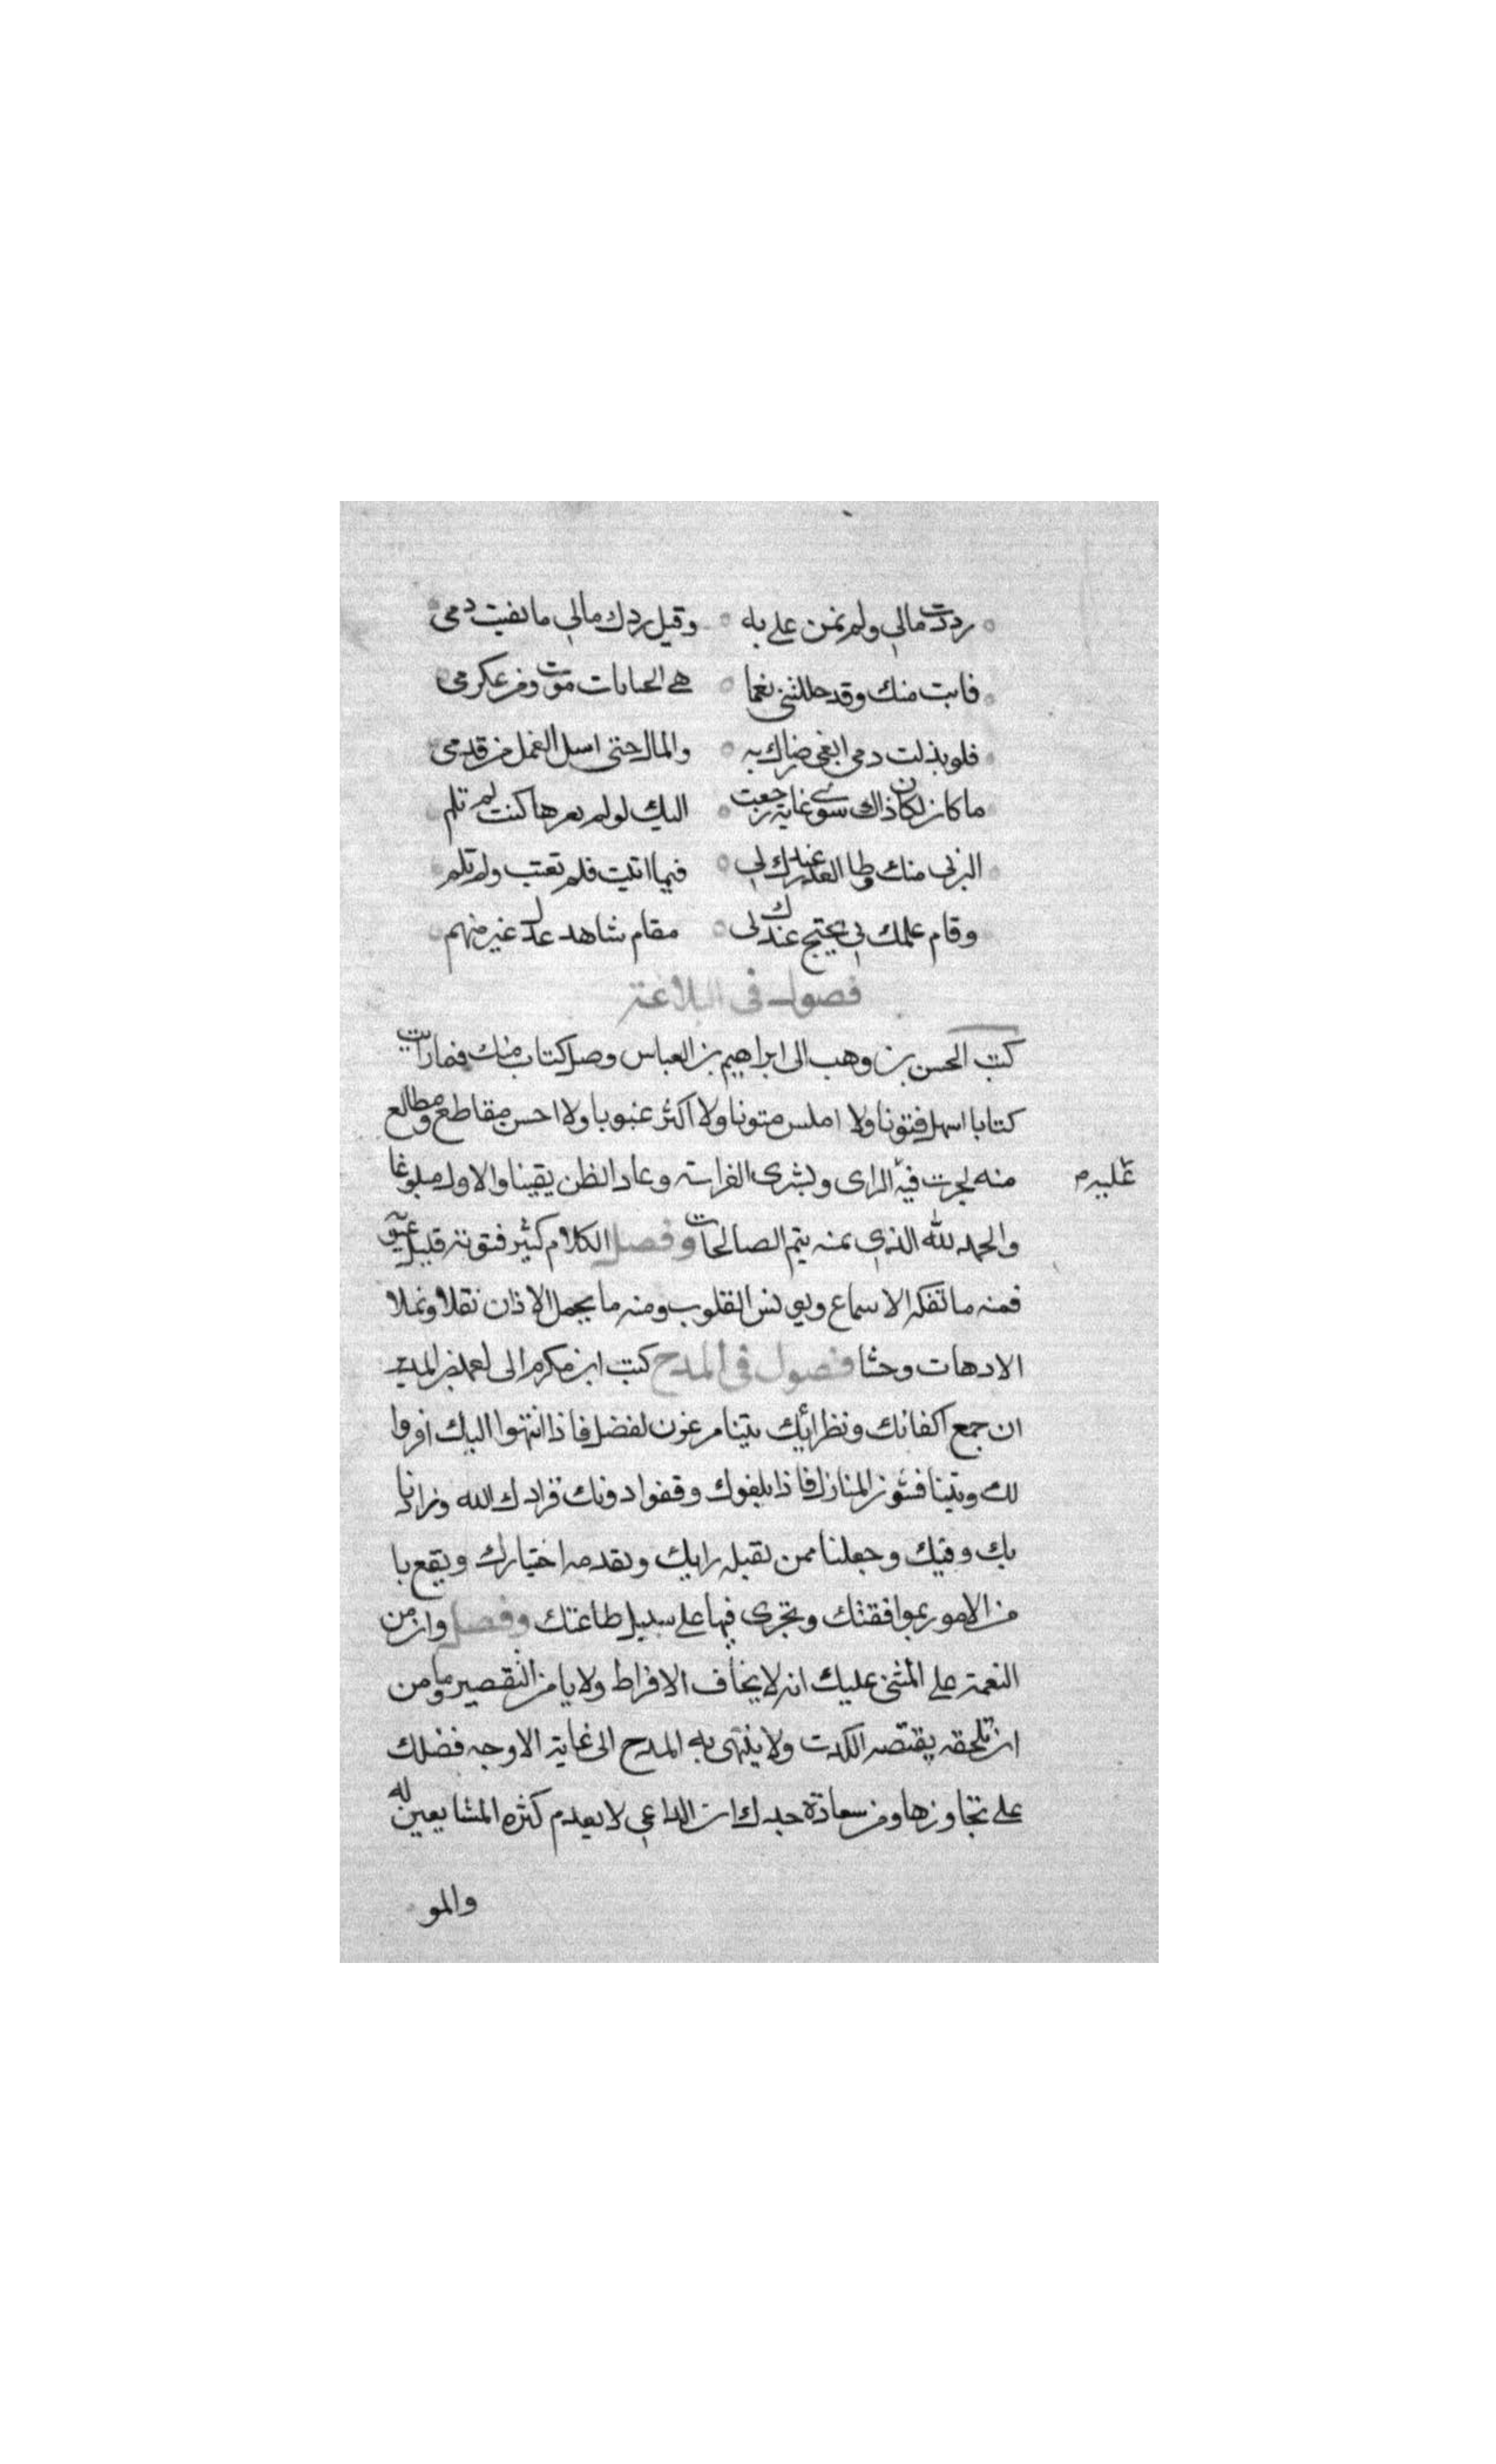 رددت مالي ولم تمنن علي به وقبل ردك مالي ما بقيت دمي
فابت منك وقد جللتني نعما هي الحياتان موت ومن كرمي
فلو بذلت دمي ابغي رضاك به والمال حتى اسل النعل من قدمي
ما كان لكان ذاك سوى غاية رجعت اليك لو لم يعرها كنت لم تلم
البر لي منك وطا العذر عندك لي فيما اتيت فلم تعتب ولم تلم
وقام علمك بي يحتج عندك لي مقام شاهد عدل غير متهم
فصول في البلاغة
كتب الحسن بن وهب الى ابراهيم بن العباس وصل كتاب منك فما رايت
كتابا اسهل فنونا ولا املس متونا ولا اكثر عيوبا ولا احسن مقاطع ومطالع
منه لجرت فيه الراى وبشرى الفراسة وعاد الظن يقينا والاول مبلوغا
والحمد لله الذي بمنه يتم الصالحات وفصل الكلام كثير فنونه قليل
فمنه ما تفكه الاسماع ويونس القلوب ومنه ما يحمل الاذان ثقلا ويملا
الاذهان وحشا فصول في المدح كتب ابن مكرم الى احمد بن المدبر
ان جمع اكفائك ونظرائك يتنازعون لفضل فاذا انتهوا اليك اقروا
لك ويتنافسون المنازل فاذا بلغوك وقفوا دونك فزادك الله وزادنا
بك وفيك وجعلنا ممن يقبله رايك ويقدمه اختيارك ويقع با
من الامور بموافقتك ويجرى فيها على سبيل طاعتك وفصل وان من
النعمة على المثني عليك انه لا يخاف الافراط ولا يامن التقصير وما من
ان تلحقه نقيصة الكذب ولا ينتهى به المدح الى غاية الا وجد فضلك
على تجاوزها ومن سعادة جدك ان الداعي لا يعدم كثره المشايعين له
والمو